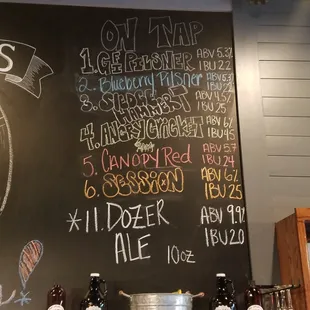 ON TAP
1. GE PILSNER ABV 5.2
IBU 22
2. Blueberry Pilsner ABV 5.2
IBU 22
3. ABV 4.5
IBU 25
4. ANGRY CRICKET ABV 6%
IBU 45
5. CANOPY RED ABV 5.7
IBU 24
6. SESSION ABV 6%
IBU 25
*11. DOZER ABV 9.9%
ALE 10oz IBU 20
S